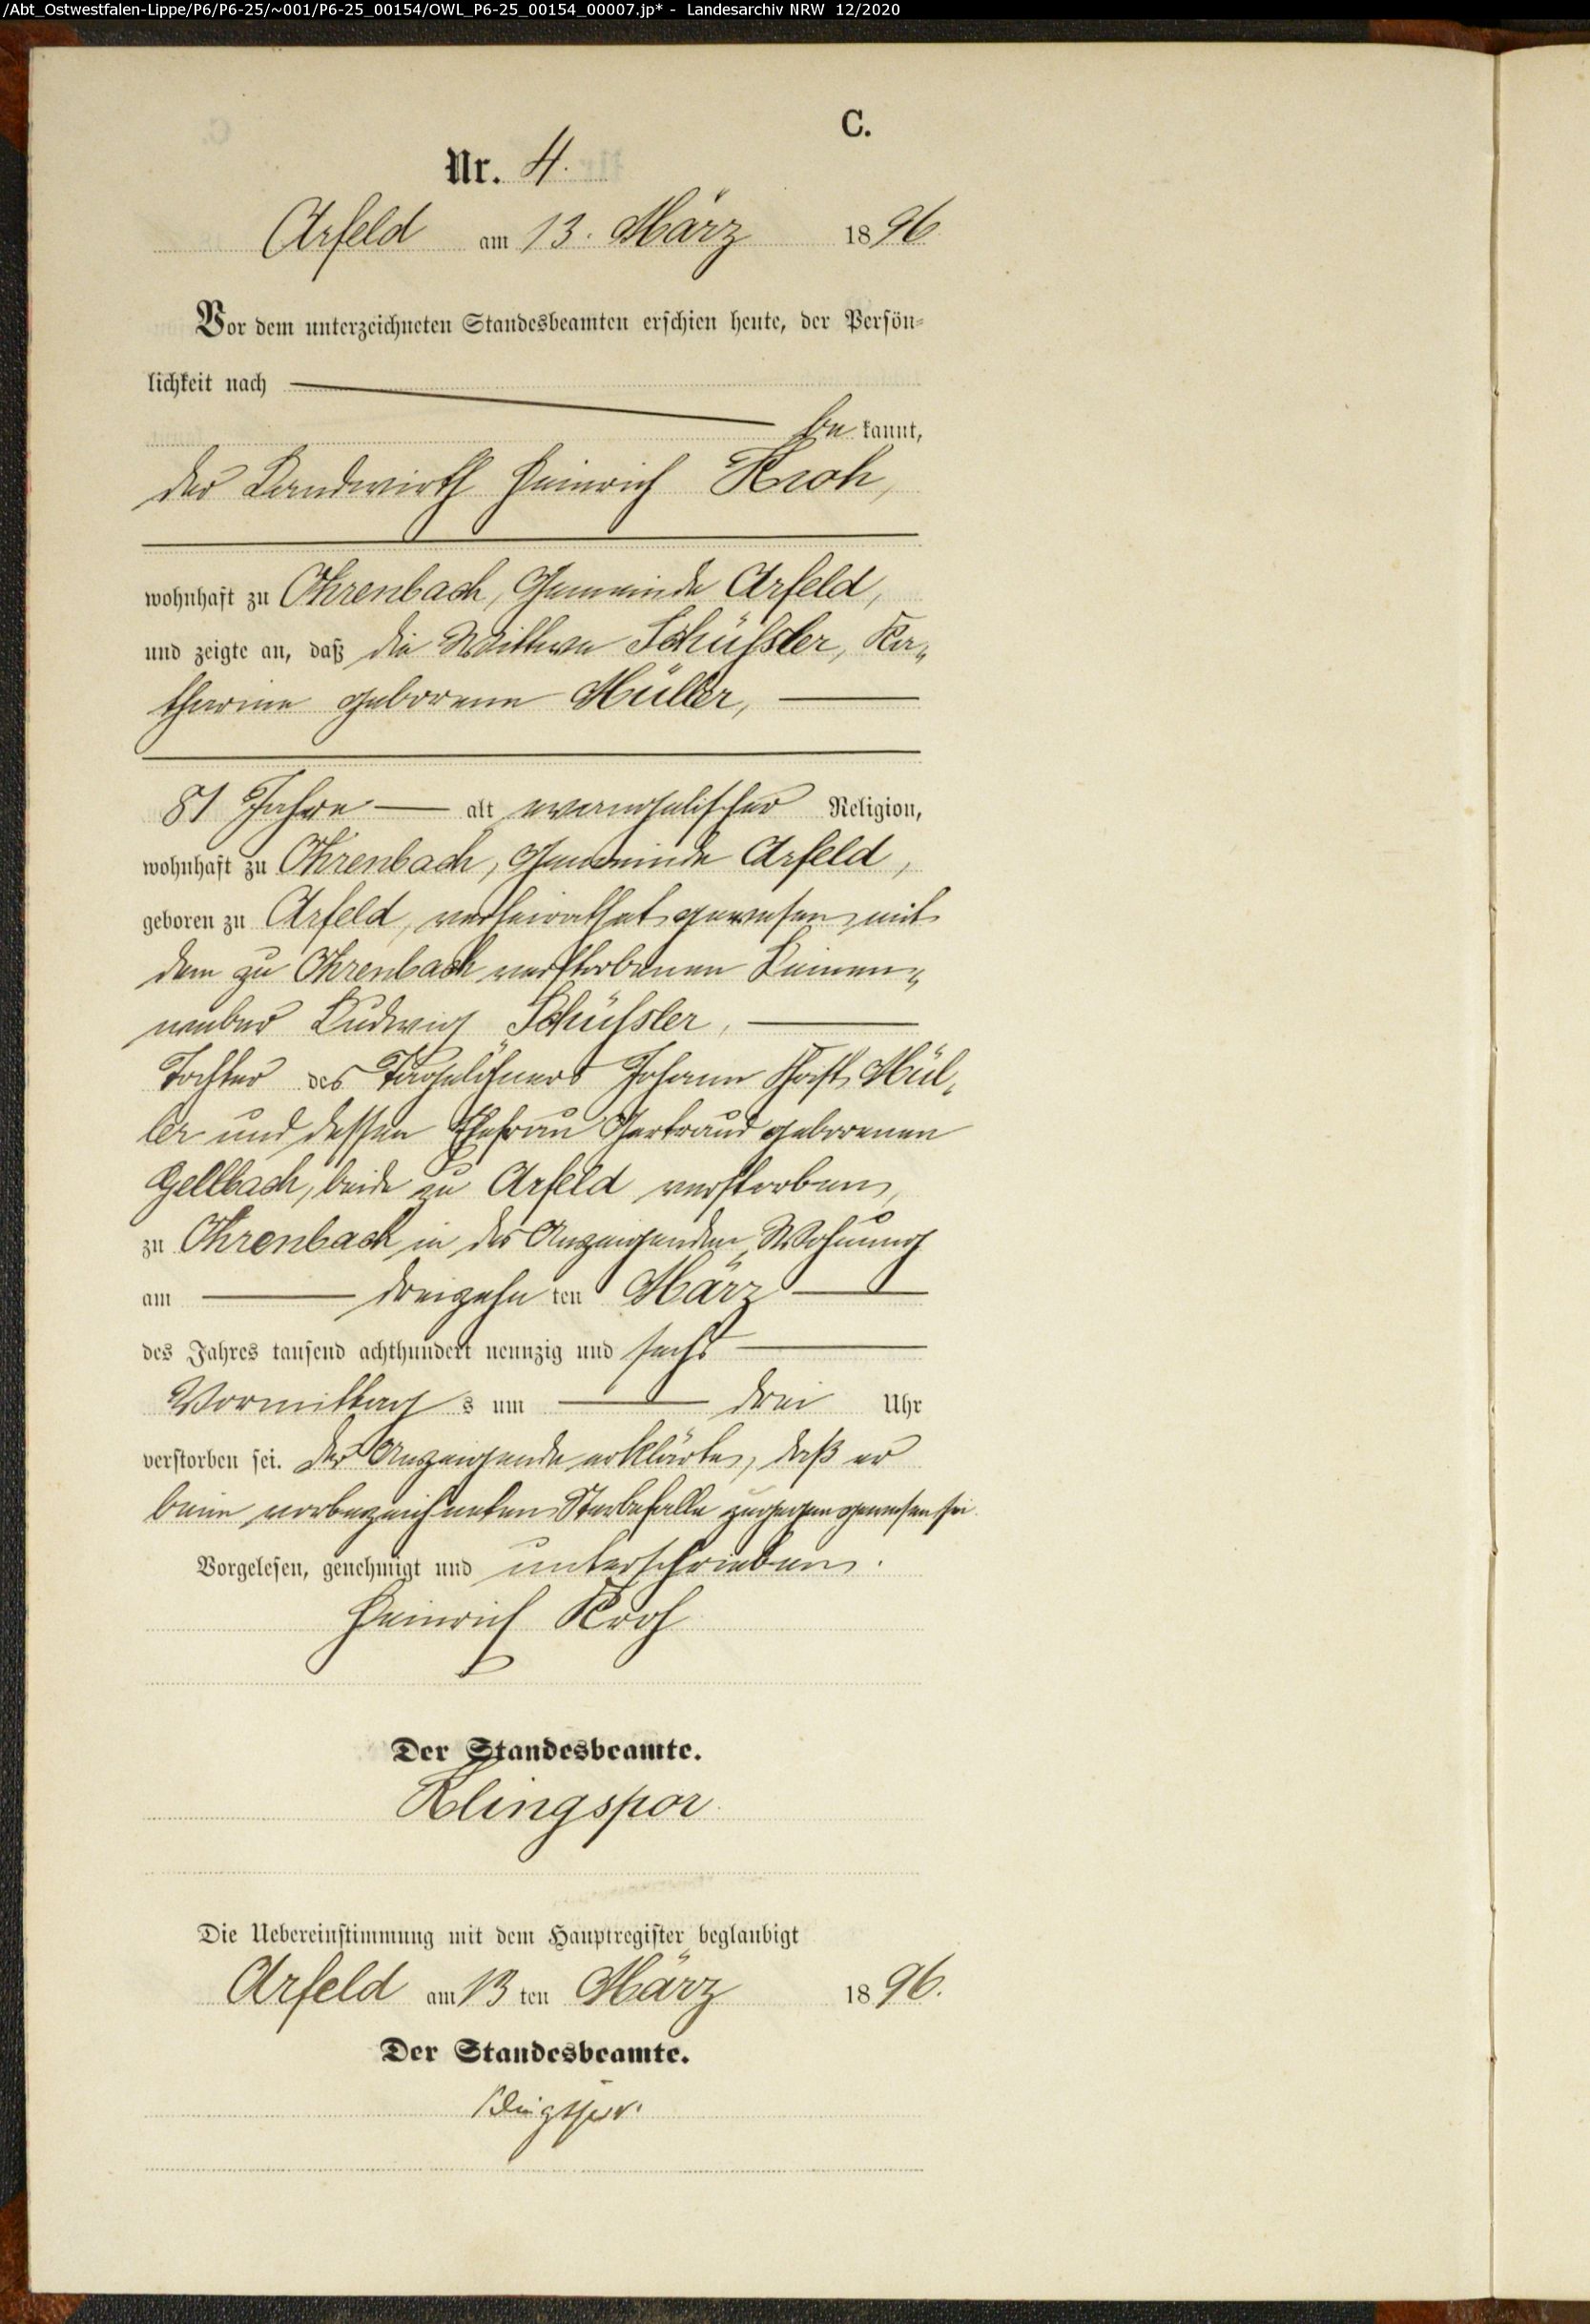 /Abt_Ostwestfalen-Lippe/P6/P6-25/~001/P6-25_00154/OWL_P6-25_00154_00007.jp* - Landesarchiv NRW 12/2020
C.
Nr. 4.
Arfeld am 13. März 1896
Vor dem unterzeichneten Standesbeamten erschien heute, der Persön-
lichkeit nach
be kannt,
der Landwirth Heinrich Kroh,
wohnhaft zu Ohrenbach, Gemeinde Arfeld,
und zeigte an, daß die Wittwe Schüssler, Ka-
tharine geborene Müller,
81 Jahre alt evangelischer Religion,
wohnhaft zu Ohrenbach, Gemeinde Arfeld,
geboren zu Arfeld, verheirathet gewesen mit
dem zu Ohrenbach verstorbenen Leinen-
weber Ludwig Schüssler,
Tochter des Tagelöhners Johann Christ. Mül-
ler und dessen Ehefrau Gertraud geborenen
Gellbach, beide zu Arfeld verstorben,
zu Ohrenbach in des Anzeigenden Wohnung
am dreizehn ten März
des Jahres tausend achthundert neunzig und sechs
Vormittag s um drei Uhr
verstorben sei. Der Anzeigende erklärte, daß er
beim vorbezeichneten Sterbefalle zugegen gewesen sei.
Vorgelesen, genehmigt und unterschrieben.
Heinrich Kroh
Der Standesbeamte.
Klingspor
Die Uebereinstimmung mit dem Hauptregister beglaubigt
Arfeld am 13 ten März 1896.
Der Standesbeamte.
Klingspor.